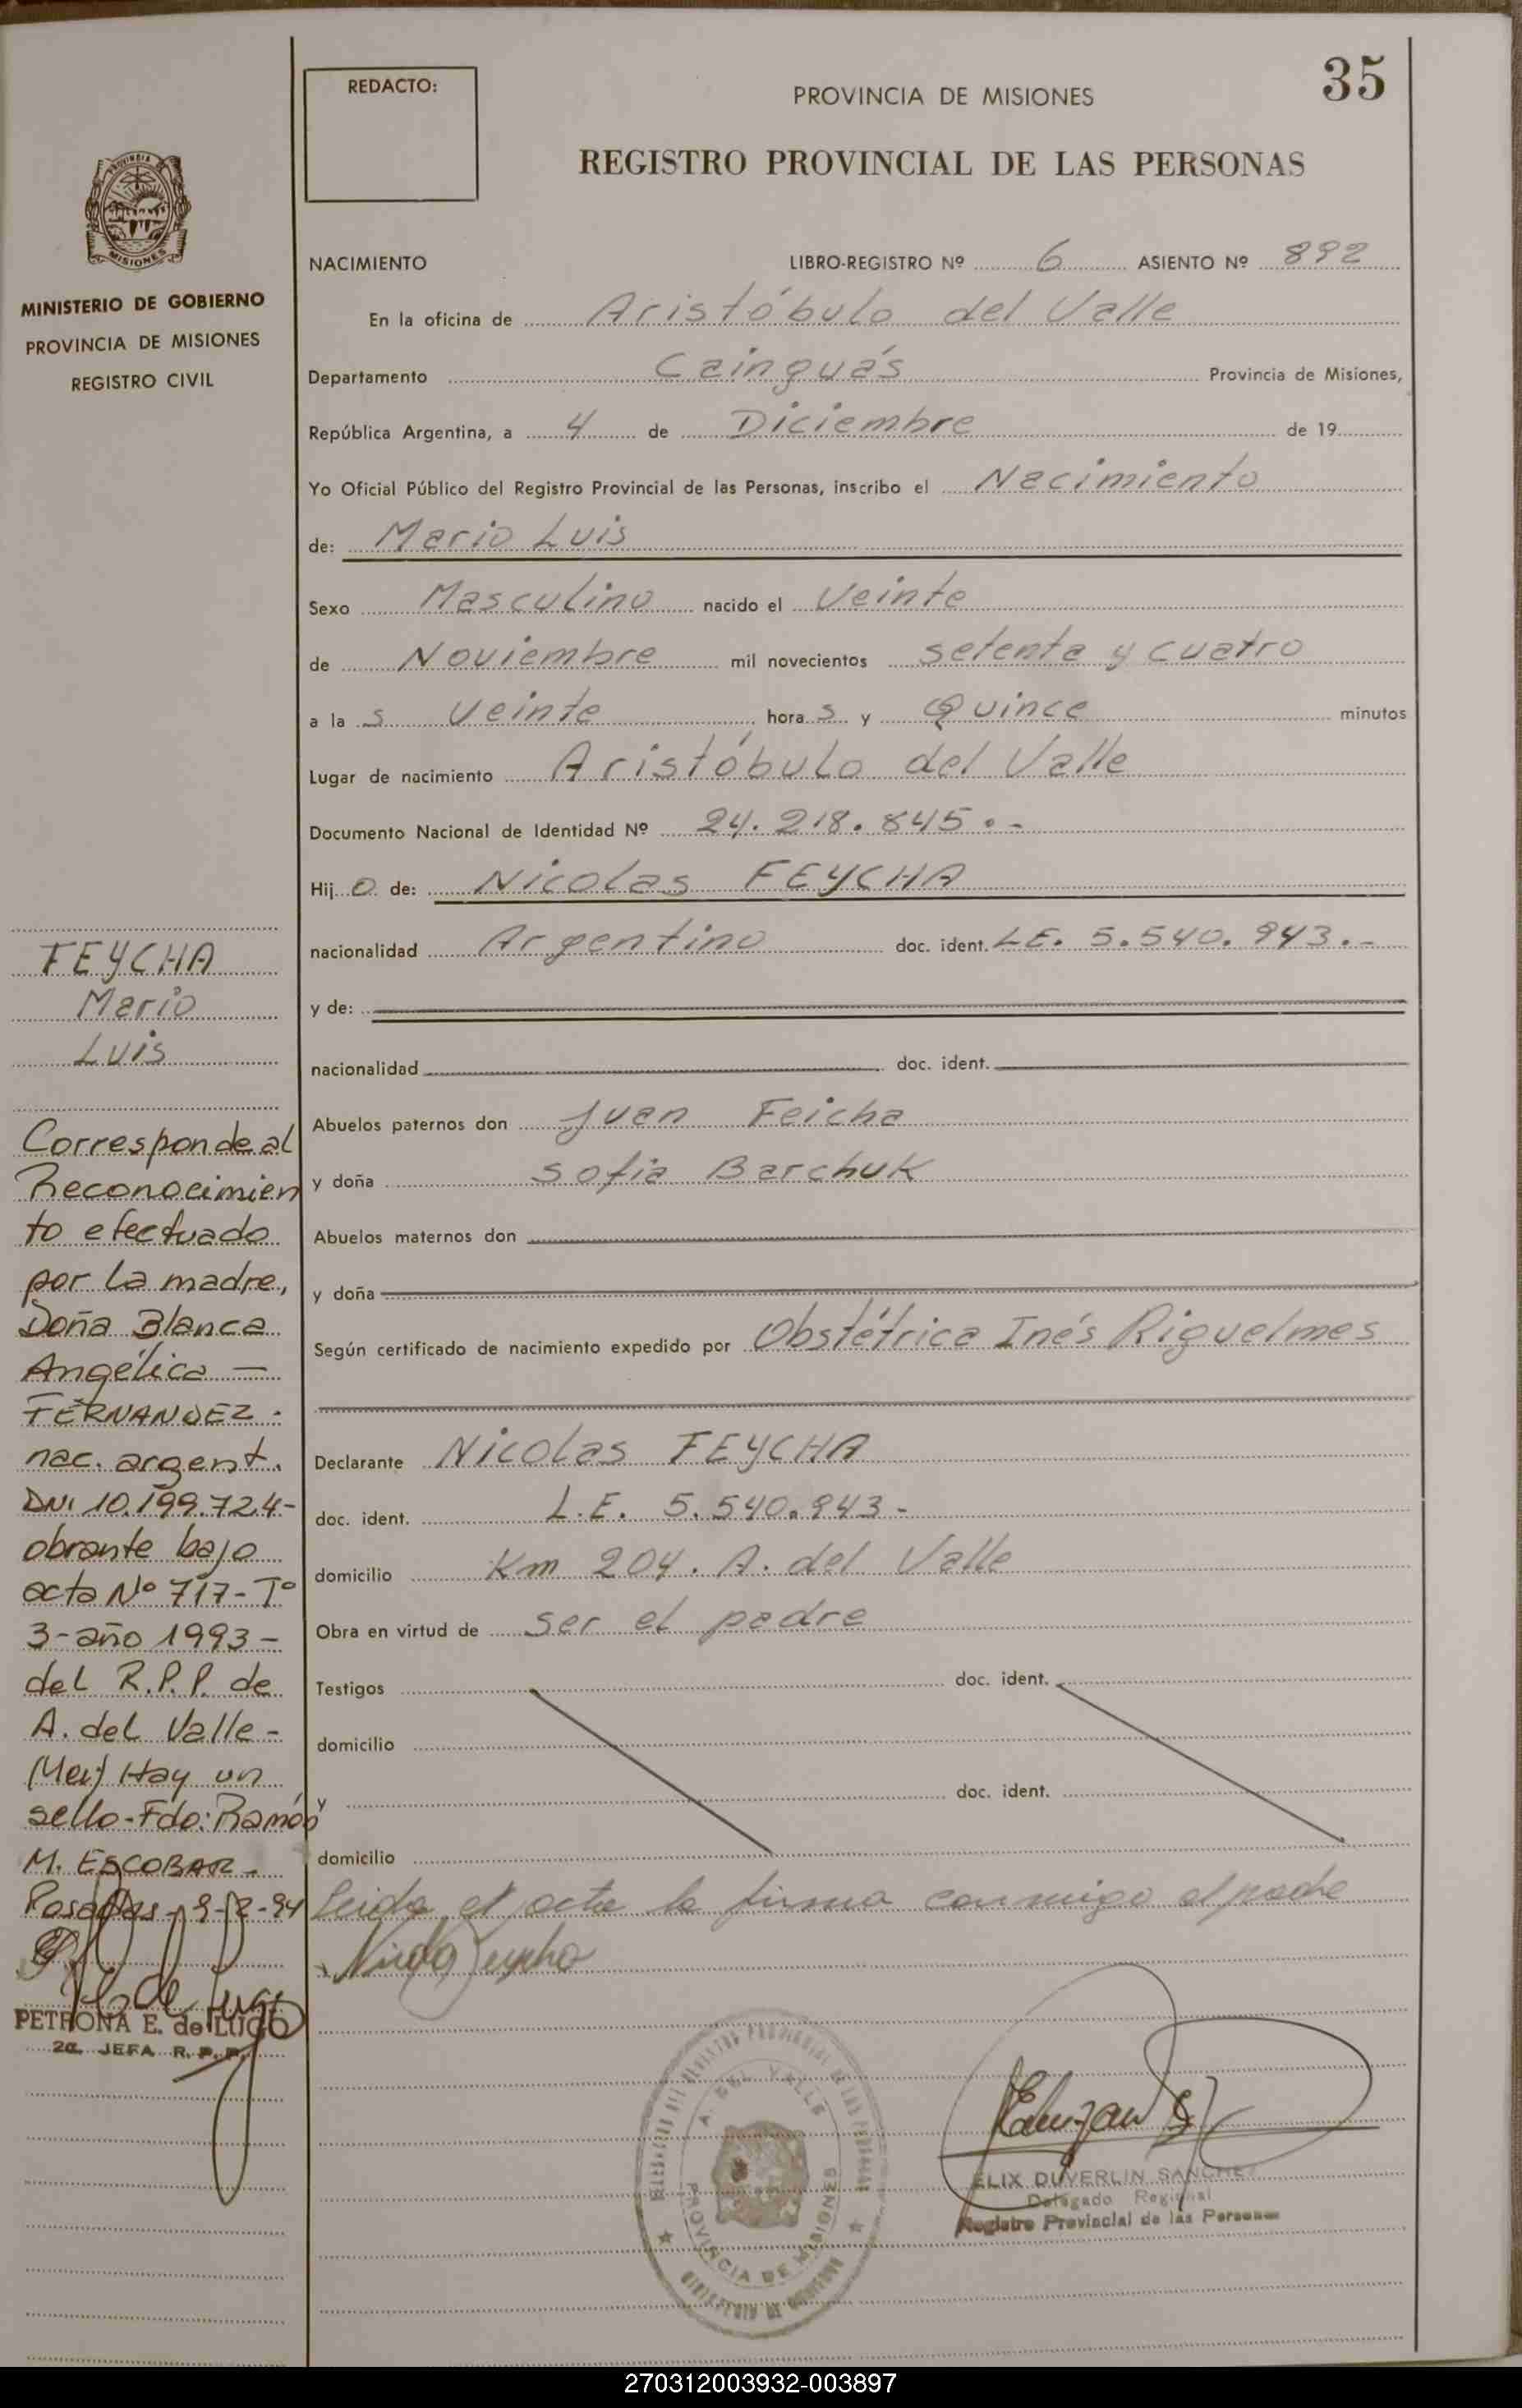 35
REDACTO:
PROVINCIA DE MISIONES
REGISTRO PROVINCIAL DE LAS PERSONAS
PROVINCIA
MISIONES
MINISTERIO DE GOBIERNO
PROVINCIA DE MISIONES
REGISTRO CIVIL
NACIMIENTO LIBRO-REGISTRO Nº 6 ASIENTO Nº 892
En la oficina de Aristóbulo del Valle
Departamento Cainguás Provincia de Misiones,
República Argentina, a 4 de Diciembre de 19
Yo Oficial Público del Registro Provincial de las Personas, inscribo el Nacimiento
de: Mario Luis
Sexo Masculino nacido el Veinte
de Noviembre mil novecientos setenta y cuatro
a la s Veinte hora s y Quince minutos
Lugar de nacimiento Aristóbulo del Valle
Documento Nacional de Identidad Nº 24.218.845.-
Hij o de: Nicolas FEYCHA
nacionalidad Argentino doc. ident. LE. 5.540.943.-
y de:
nacionalidad doc. ident.
Abuelos paternos don Juan Feicha
y doña Sofia Barchuk
Abuelos maternos don
y doña
Según certificado de nacimiento expedido por Obstétrica Inés Riquelmes
Declarante Nicolas FEYCHA
doc. ident. L.E. 5.540.943-
domicilio Km 204. A. del Valle
Obra en virtud de ser el padre
Testigos doc. ident.
domicilio
y doc. ident.
domicilio
Leida el acta la firma conmigo el padre
FEYCHA
Mario
Luis
Corresponde al
Reconocimien
to efectuado
por la madre,
Doña Blanca
Angélica —
FERNANDEZ.
nac. argent.
DNI 10.199.724-
obrante bajo
acta Nº 717- Tº
3- año 1993-
del R.P.P. de
A. del Valle-
Hay un
sello-Fdo: Ramón
M. ESCOBAR-
Posadas-9-2-94
PETRONA E. de LUGO
2a. JEFA R. P. P.
A. DEL VALLE
PROVINCIA DE MISIONES
MINISTERIO DE GOBIERNO
ELIX DUVERLIN SANCHEZ
Delegado Regional
Registro Provincial de las Personas
270312003932-003897